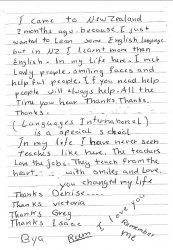 I came to NewZealand
2 months ago. because I just
wanted to Lean some English language
but in NZ I learnt more then
English. In my Life here. I met
Lovely people. smiling faces and
helpful people. If you need help
people will always help. All the
Time you hear Thanks. Thanks.
Thanks.
(Languages International)
is a special school
In my life I have never seen
teaches like here. The teachers
Love the Jobs. They teach from the
heart. with smiles and Love.
you changed my life
Thanks Denise....
Thanks victoria
Thanks Greg
Thanks Isaac
I love you
Remember
Bye